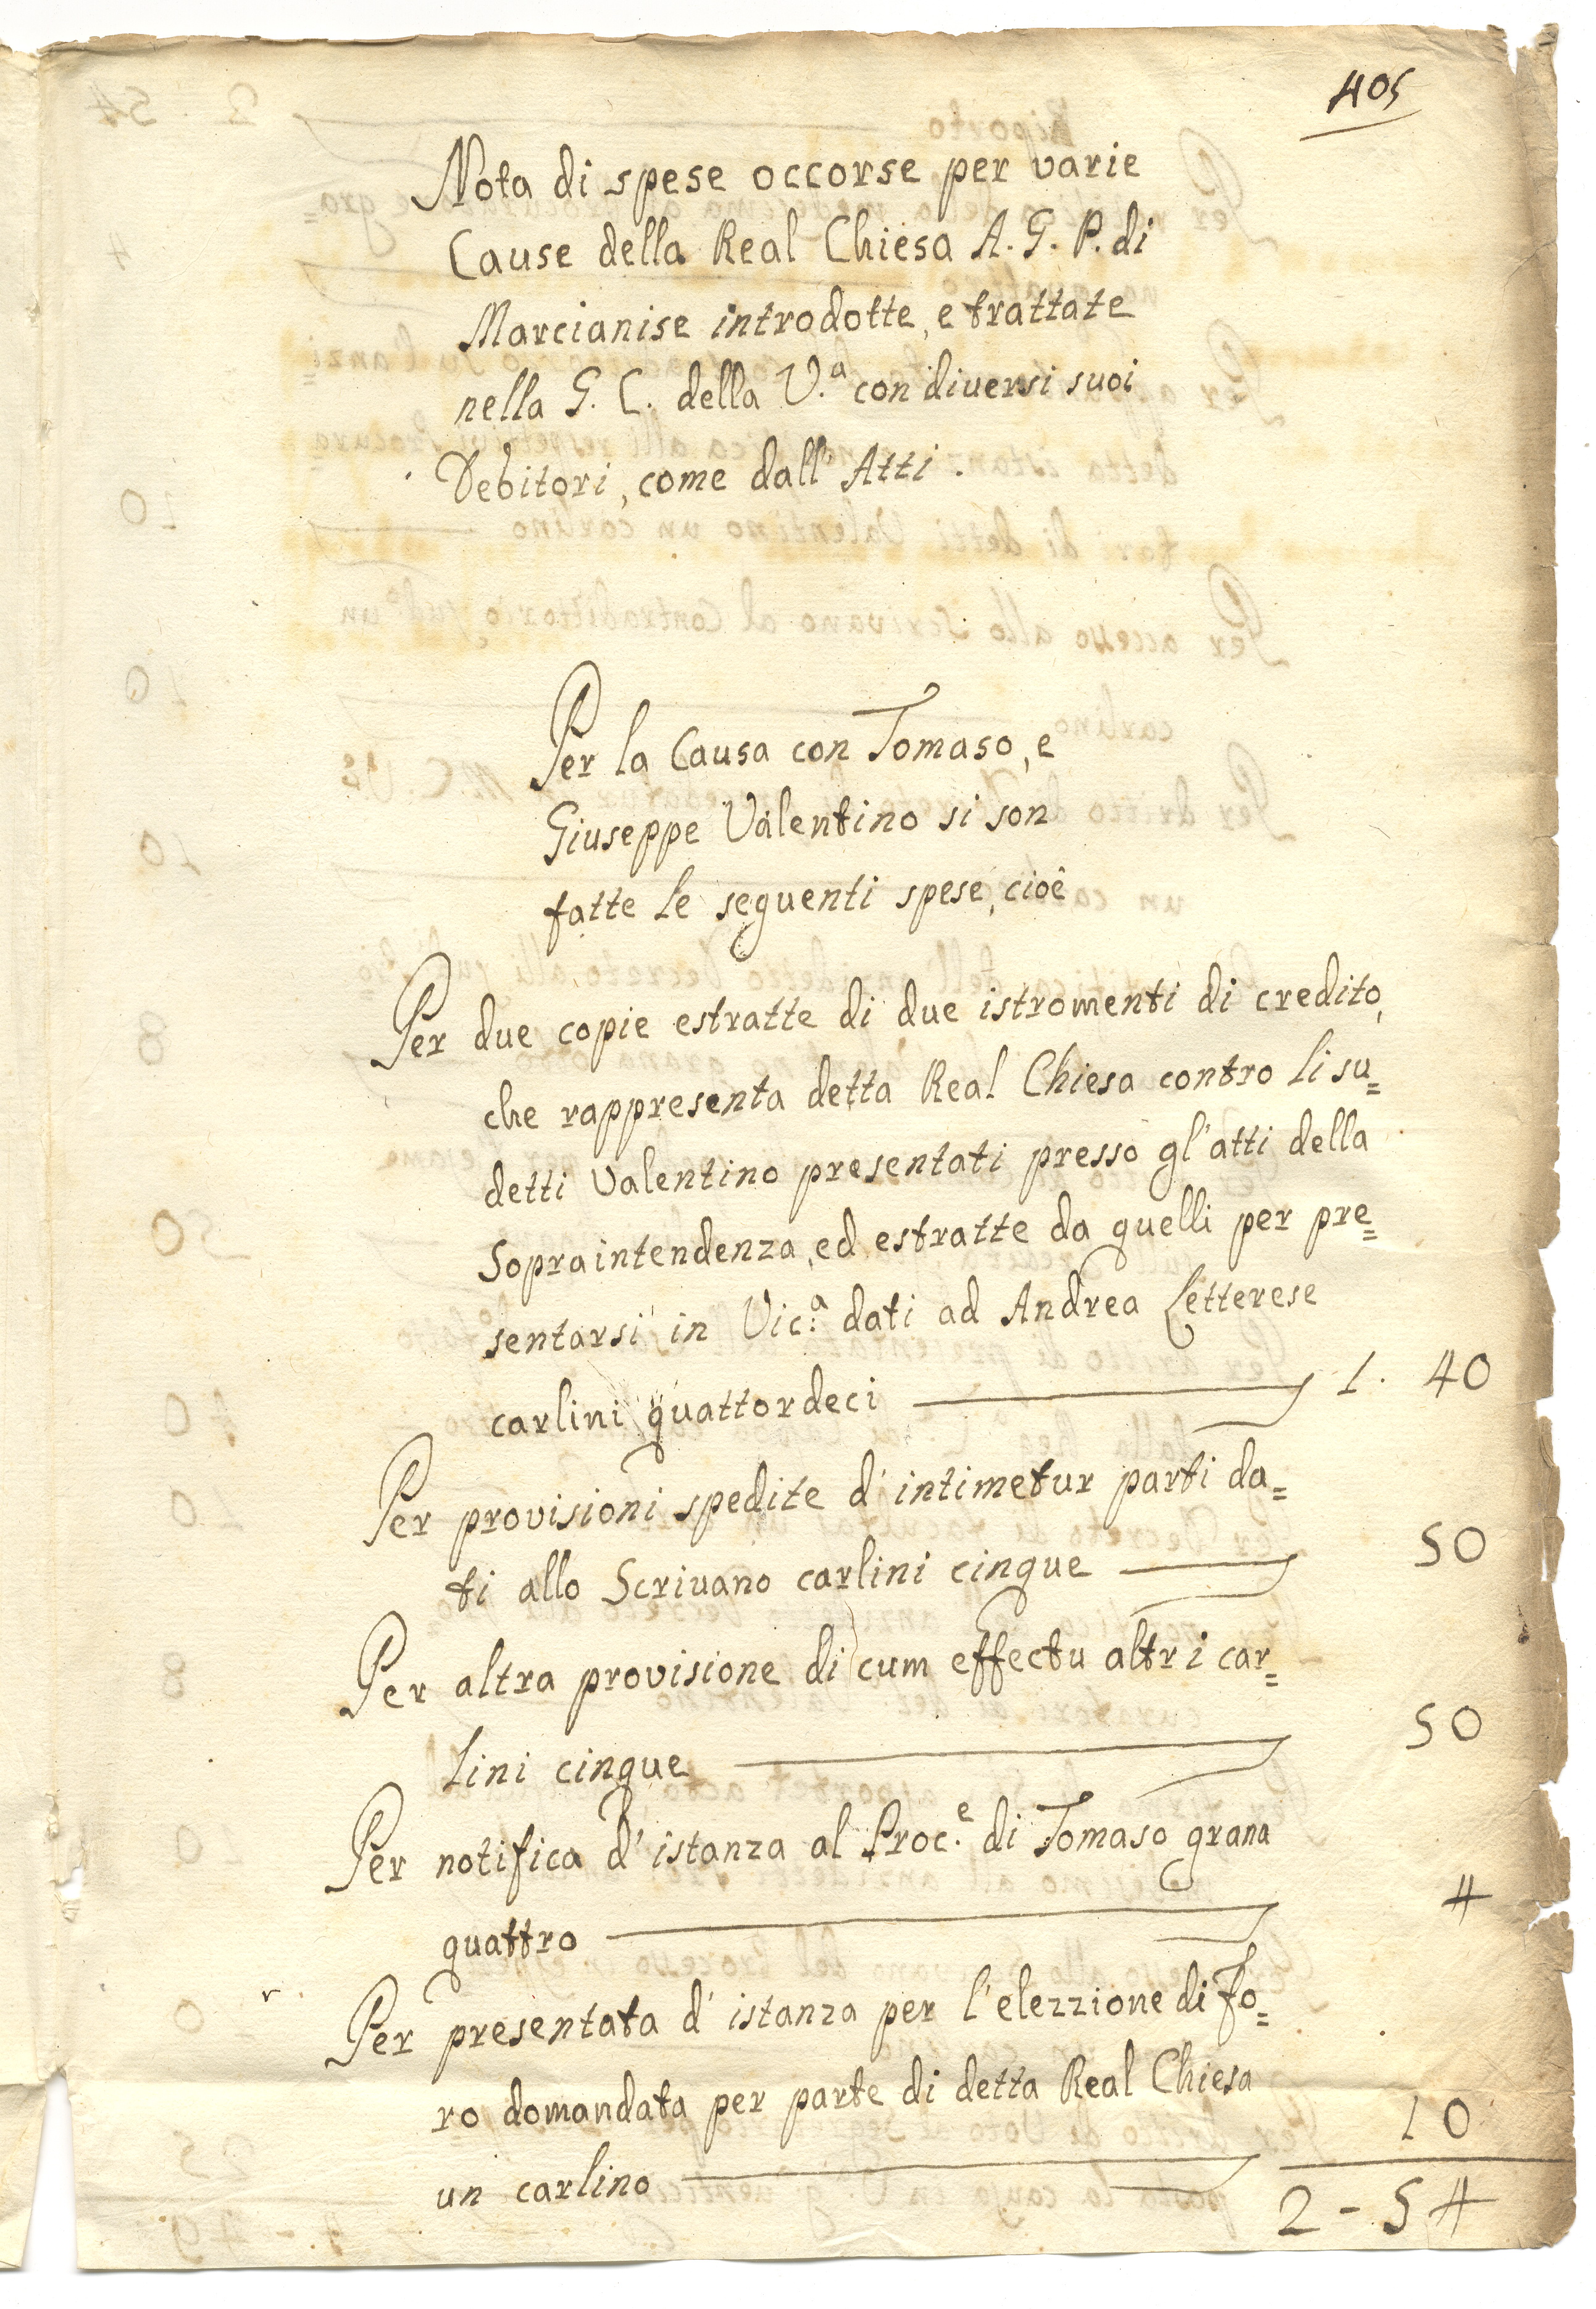 405
Nota di spese occorse per varie
Cause della Real Chiesa A. G. P. di
Marcianise introdotte, e trattate
nella G. C. della V.a con diversi suoi
Debitori, come dall' Atti.
Per la Causa con Tomaso, e
Giuseppe Valentino si son
fatte le seguenti spese, cioè
Per due copie estratte di due istromenti di credito,
che rappresenta detta Real Chiesa contro li su=
detti Valentino presentati presso gl'atti della
Sopraintendenza, ed estratte da quelli per pre=
sentarsi in Vic.a dati ad Andrea Letterese
carlini quattordeci 1. 40
Per provisioni spedite d'intimetur parti da=
ti allo Scrivano carlini cinque 50
Per altra provisione di cum effectu altri car=
lini cinque 50
Per notifica d'istanza al Proc.e di Tomaso grana
quattro 4
Per presentata d'istanza per l'elezzione di fo=
ro domandata per parte di detta Real Chiesa
un carlino 10
2 - 54